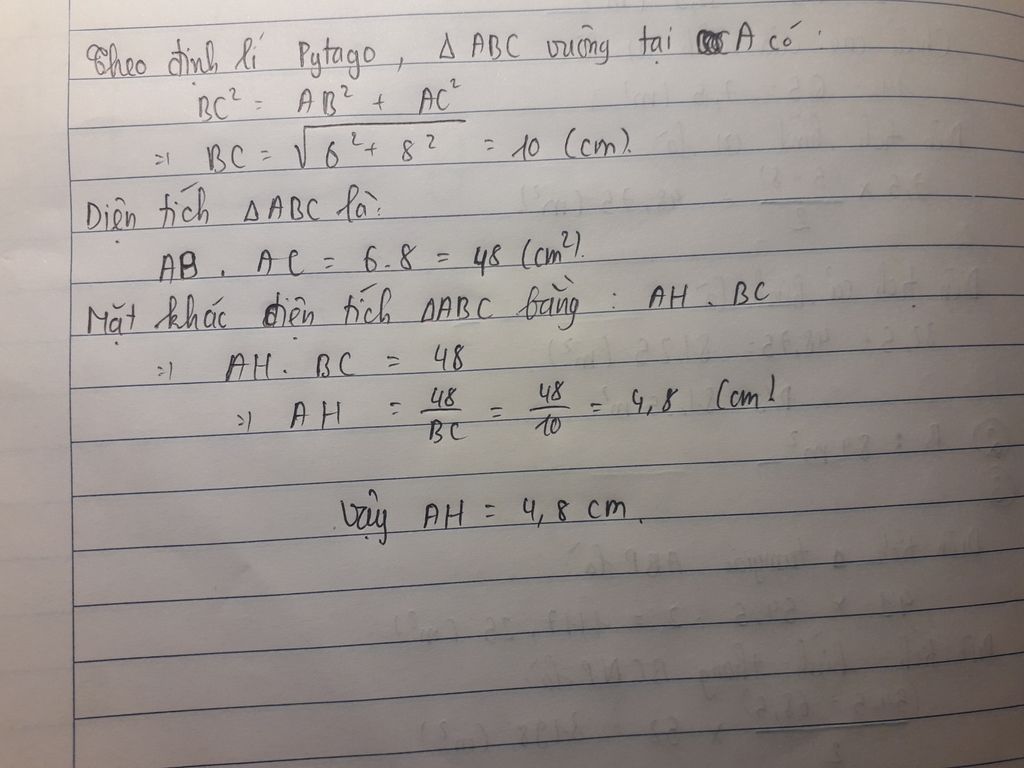 Theo định lí Pytago, Δ ABC vuông tại A có:
BC² = AB² + AC²
=> BC = √6² + 8² = 10 (cm).
Diện tích ΔABC là:
AB . AC = 6.8 = 48 (cm²).
Mặt khác diện tích ΔABC bằng: AH . BC
=> AH . BC = 48
=> AH = 48/BC = 48/10 = 4,8 (cm)
Vậy AH = 4,8 cm.